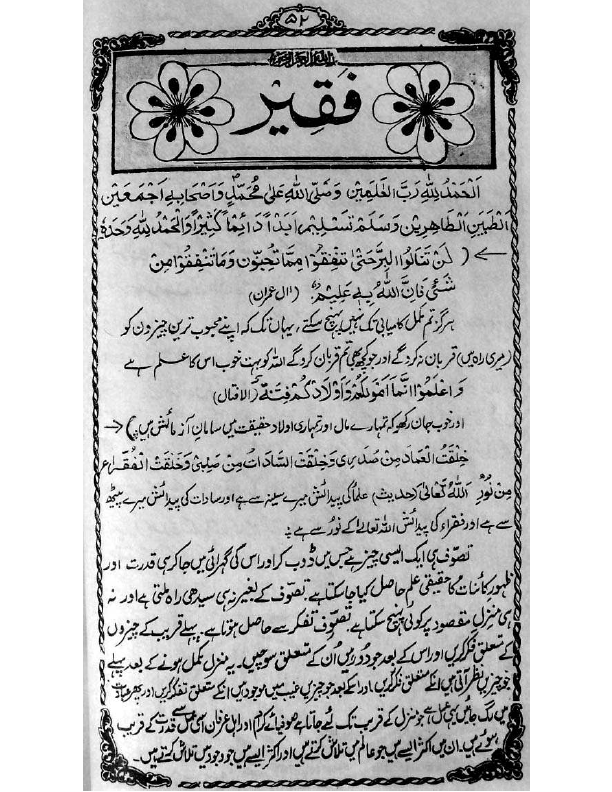 ۵۲
فَقِیْر
اَلْحَمْدُ لِلّٰہِ رَبِّ الْعٰلَمِیْن وَصَلَّی اللہُ عَلٰی مُحَمَّدٍ وَاَصْحَابِہٖ اَجْمَعِیْن
الطَّیِّبِیْنَ الطَّاھِرِیْن وَسَلَّمَ تَسْلِیْمًا اَبَدًا دَائِمًا کَثِیْرًا وَالْحَمْدُ لِلّٰہِ وَحْدَہٗ
( لَنْ تَنَالُوا الْبِرَّ حَتّٰی تُنْفِقُوْا مِمَّا تُحِبُّوْن وَمَا تُنْفِقُوْا مِنْ
شَئیٍ فَاِنَّ اللہَ بِہٖ عَلِیْمٌ (اٰل عمران)
ہرگز تم مکمل کامیابی تک نہیں پہنچ سکتے، یہاں تک کہ اپنے محبوب ترین چیزون کو
(میری راہ میں) قربان نہ کرو گے اور جو کچھ بھی تم قربان کرو گے اللہ کو بہت خوب اس کا علم ہے
وَاعْلَمُوْا اَنَّمَا اَمْوَالُکُمْ وَاَوْلَادُکُمْ فِتْنَۃٌ (الانفال)
اور خوب جان رکھو کہ تمہارے مال اور تمہاری اولاد حقیقت میں سامانِ آزمائش ہیں )
خُلِقَتُ الْعُلَمَاءَ مِنْ صَدْرِیْ وَخُلِقَتُ السَّادَاتُ مِنْ صُلْبِیْ وَخُلِقَتُ الْفُقَرَاءُ
مِنْ نُوْرِ اللہُ تَعَالیٰ (حدیث) علماء کی پیدائش میرے سینے سے ہے اور سادات کی پیدائش میرے پیٹھ
سے ہے اور فقراء کی پیدائش اللہ تعالےٰ کے نورُ سے ہے
تصوّف ہی ایک ایسی چیز ہے جس میں ڈوب کر اور اس کی گہرائی میں جا کر ہی قدرت اور
ظہورِ کائنات کا حقیقی علم حاصل کیا جا سکتا ہے۔ تصوّف کے بغیر نہ ہی سیدھی راہ ملتی ہے اور نہ
ہی منزلِ مقصود پر کوئی پہنچ سکتا ہے۔ تصوّف تفکر سے حاصل ہوتا ہے۔ پہلے قریب کے چیزوں
کے متعلق فکر کریں اور اس کے بعد جو دُور ہیں اُن کے متعلق سوچیں۔ یہ منزل مکمل ہونے کے بعد پہلے
جو چیزیں نظر آتی ہیں انکے متعلق فکر کریں، اور اسکے بعد جو چیزیں غیب میں موجود ہیں انکے متعلق تفکر کریں اور پھر عبادت
میں لگ جائیں یہی عمل ہے جو منزل کے قریب تک لئے جاتا ہے صوفیائے کرام اور اہل عرفان اسی عمل سے قدرت کے قریب
ہوئے ہیں۔ ان میں اکثر ایسے ہیں جو عالم میں تلاش کرتے ہیں اور اکثر ایسے ہیں جو وجود میں تلاش کرتے ہیں۔